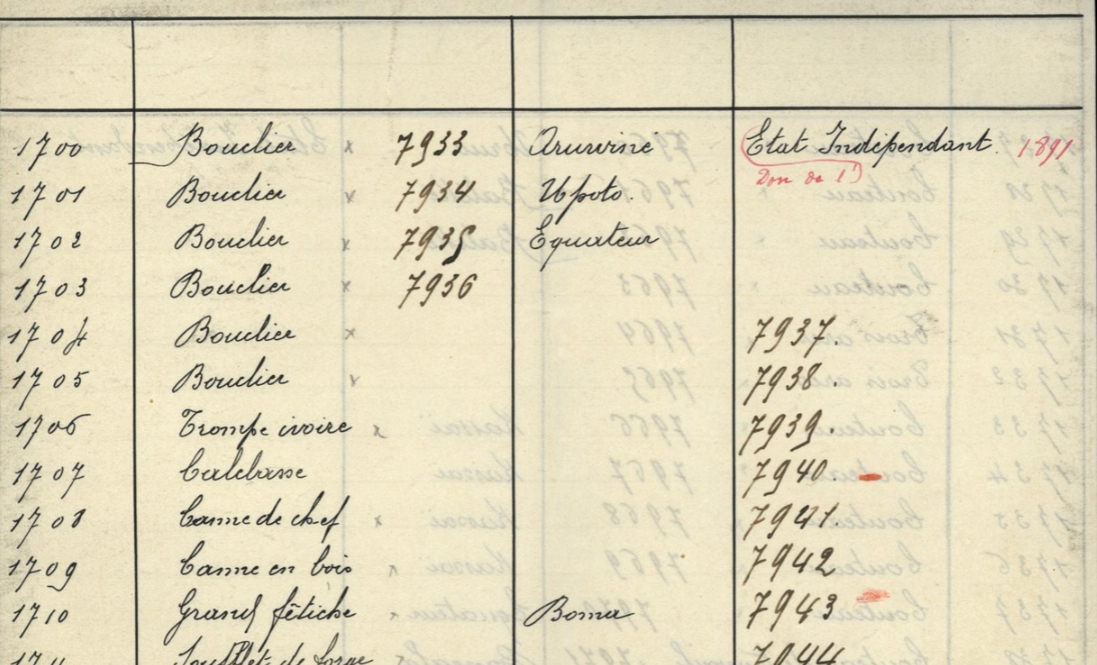 1700 Bouclier x 7933 Aruwine Etat Indépendant 1891
Don de l'
1701 Bouclier x 7934 Upoto.
1702 Bouclier x 7935 Equateur
1703 Bouclier x 7936
1704 Bouclier x 7937.
1705 Bouclier x 7938.
1706 Trompe ivoire x 7939.
1707 Calebasse 7940.
1708 Canne de chef x 7941.
1709 Canne en bois x 7942
1710 Grand fétiche x Boma 7943
1711 Soufflet de forge x 7944